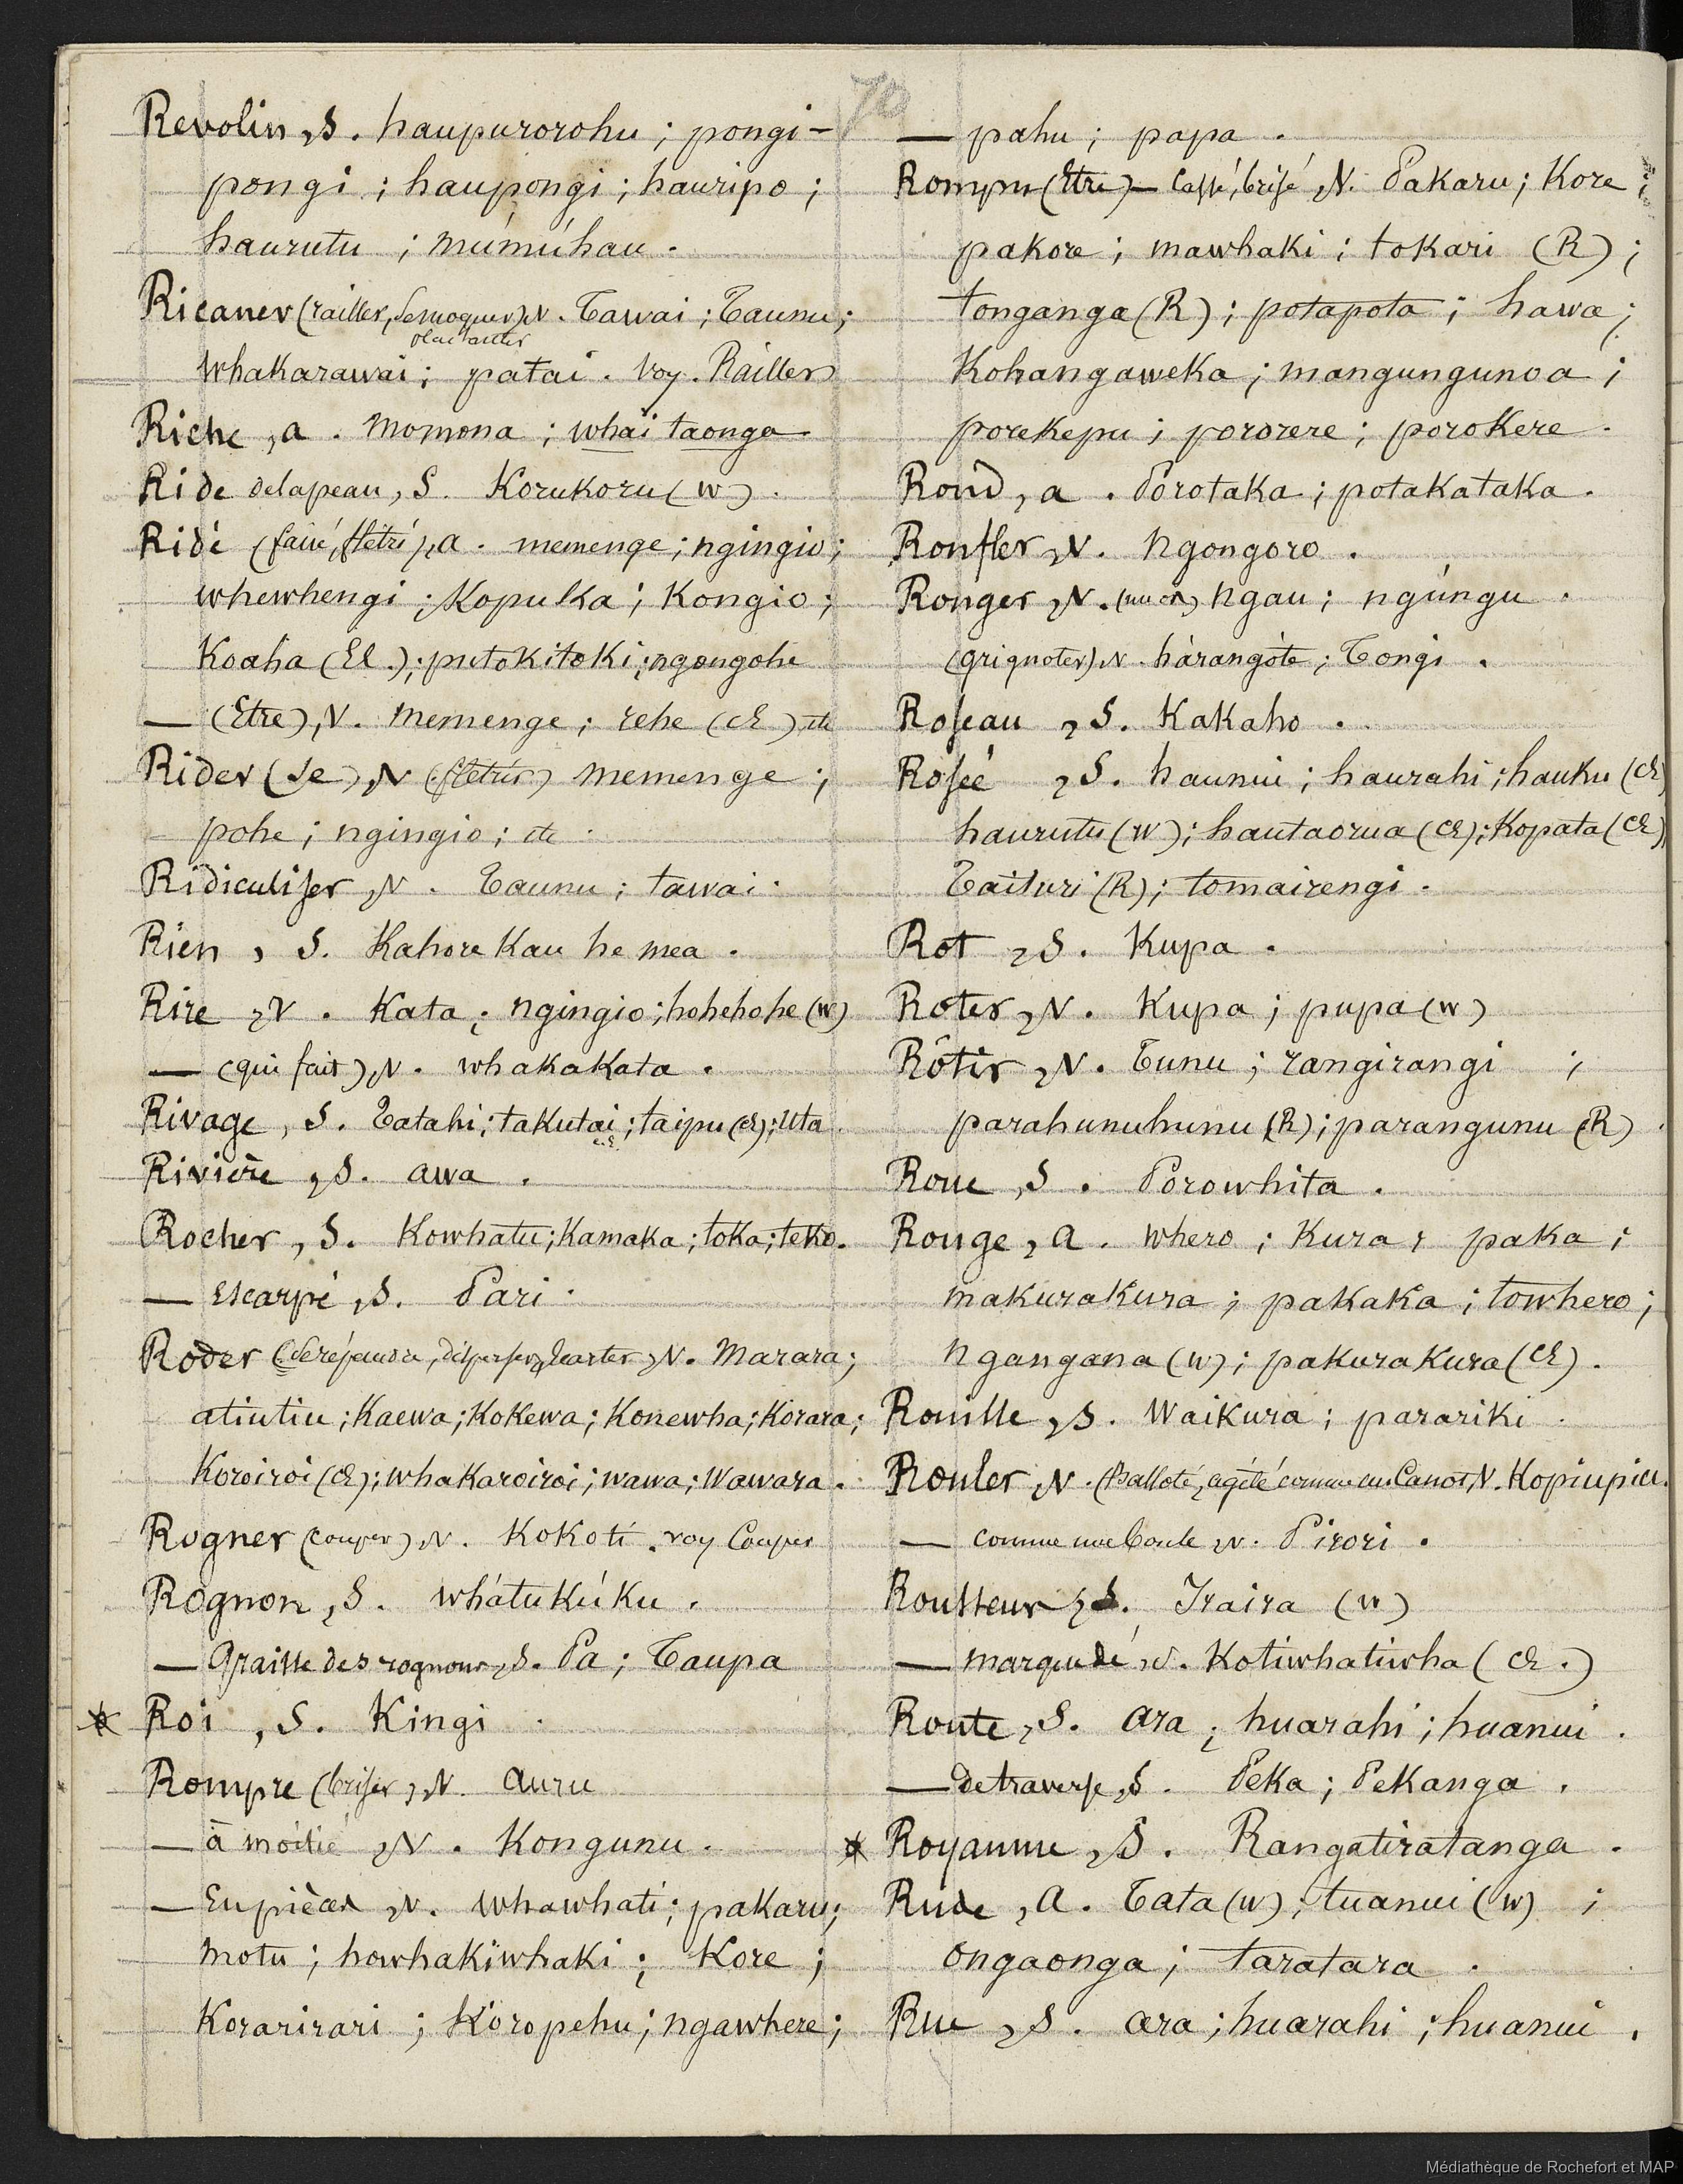 70
Revolin, S. haupurorohu; pongi-
pongi; haupongi; hauripo;
haurutu; múmúhau.
Ricaner (railler, se moquer), V. Tawai; Taunu;
plaisanter
whakarawai; patai. Voy. Railler
Riche, a. Momona; whai taonga.
Ride de la peau, S. Korukoru (W).
Ridé (fané, flétri), a. memenge; ngingio;
whewhengi; Kopuka; Kongio;
Koaha (El.); putokitoki; ngongohe
— (Etre), V. memenge; rehe (E) etc
Rider (se), V (flétrir) memenge;
pohe; ngingio; etc.
Ridiculiser, V. Taunu; tawai.
Rien, S. Kahore Kau he mea.
Rire, V. Kata; ngingio; hohehohe (W)
— (qui fait), V. whakakata.
Rivage, S. Tatahi; takutai; taipu (E); Uta.
Rivière, S. awa.
Rocher, S. Kowhatu; Kamaka; toka; teko.
— Escarpé, S. Pari.
Roder (se répandre, disperser, écarter), V. Marara;
atiutiu; Kaewa; Kokewa; Konewha; Korara;
Koroiroi (E); whakaroiroi; wawa; Wawara.
Rogner (couper), V. Kokoti. voy Couper
Rognon, S. whátukúku.
— Graisse des rognons, S. Pa; Taupa
* Roi, S. Kingi.
Rompre (briser), V. auru
— à moitié, V. Kongunu.
— En pièces, V. whawhati; pakaru;
motu; howhakiwhaki; Kore;
Korarirari; Koropehu; ngawhere;
— pahu; papa.
Rompu (Etre) — Cassé, brisé, V. Pakaru; Kore;
pakore; mawhaki; tokari (R);
tonganga (R); potapota; hawa;
Kohangaweka; mangungunoa;
porekepu; pororere; porokere.
Rond, a. Porotaka; potakataka.
Ronfler, V. Ngongoro.
Ronger, V. ngau; ngúngu.
(grignoter), V. hárangóte; Tongi.
Roseau, S. Kakaho.
Rosée, S. haunui; haurahi; hauku (E)
haurutu (W); hautaorua (E); Kopata (E)
Taituri (R); tomairengi.
Rot, S. Kupa.
Roter, V. Kupa; pupa (W)
Rôtir, V. Tunu; rangirangi;
parahunuhunu (R); parangunu (R).
Roue, S. Porowhita.
Rouge, a. whero; Kura; paka;
makurakura; pakaka; towhero;
ngangana (W); pakurakura (E).
Rouille, S. Waikura; parariki.
Rouler, V. (Balloté, agité comme un Canot, V. Kopiupiu.
— comme une boule, V. Pirori.
Rousseur, S. Iraira (W)
— marqué de, V. Kotiwhatiwha (E.)
Route, S. ara; huarahi; huanui.
— de traverse, S. Peka; Pekanga.
* Royaume, S. Rangatiratanga.
Rude, a. Tata (W); tuanui (W);
ongaonga; taratara.
Rue, S. ara; huarahi; huanui.
Médiathèque de Rochefort et MAP